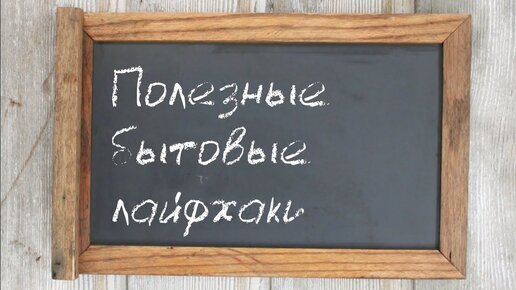 Полезные
бытовые
лайфхаки